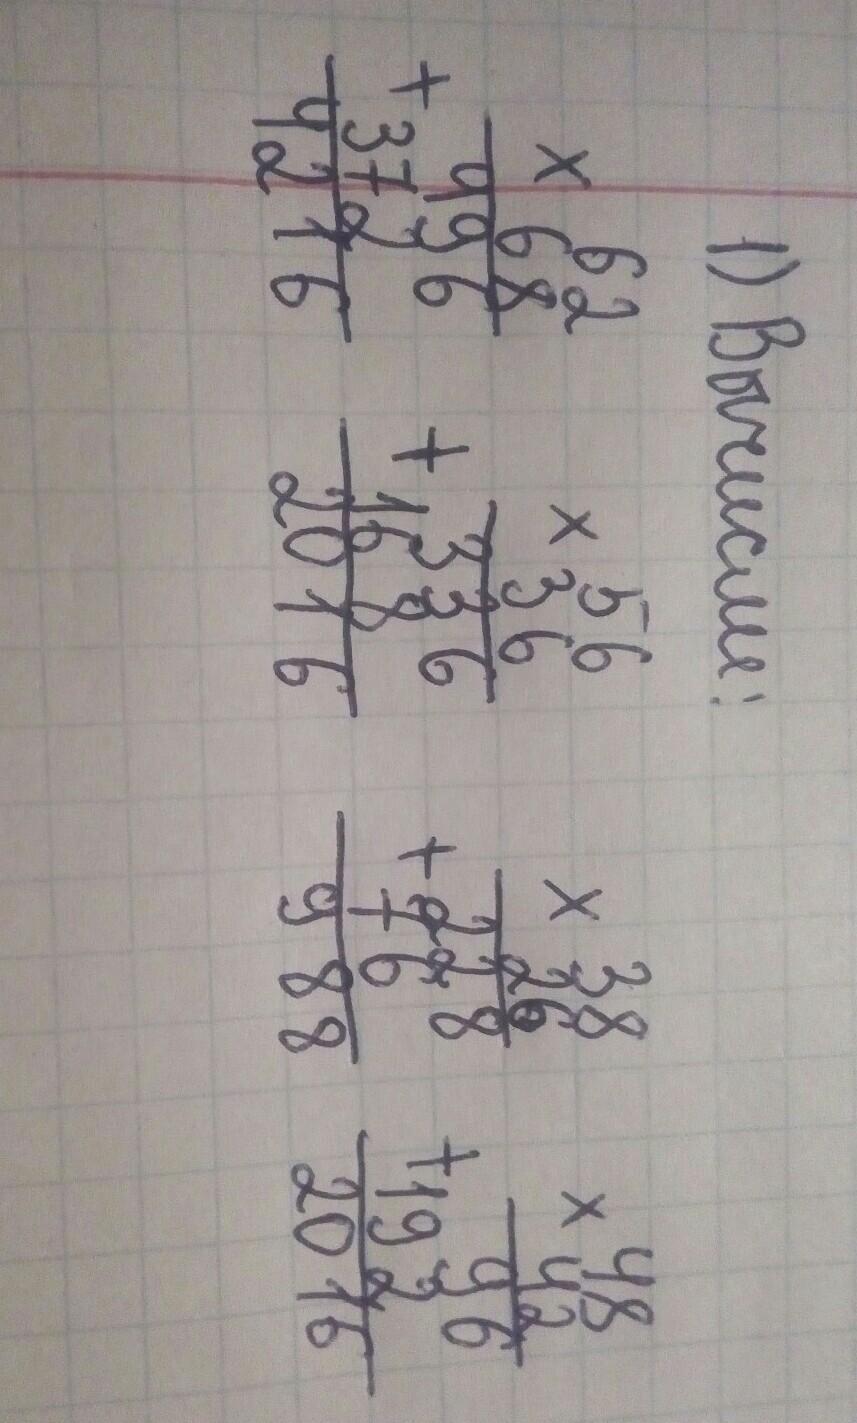 1) Вычисли:
× 62
68
496
+ 372
4216
× 56
36
336
+ 168
2016
× 38
26
228
+ 76
988
× 48
42
96
+ 192
2016